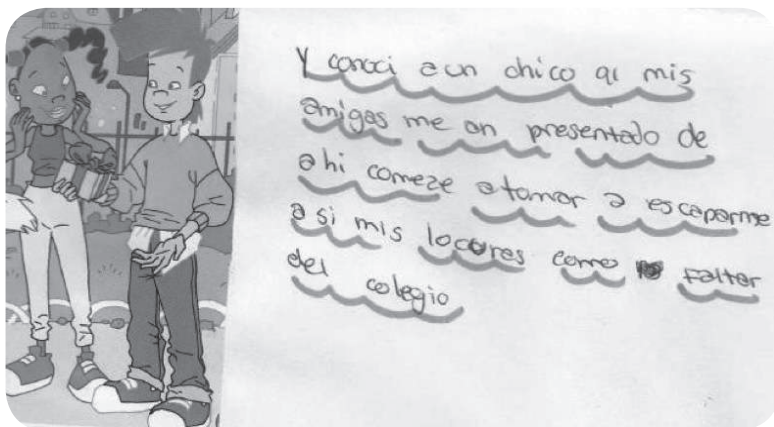 Y conoci a un chico qi mis
amigas me an presentado de
ahi comeze a tomar a escaparme
a si mis locures como faltar
del colegio